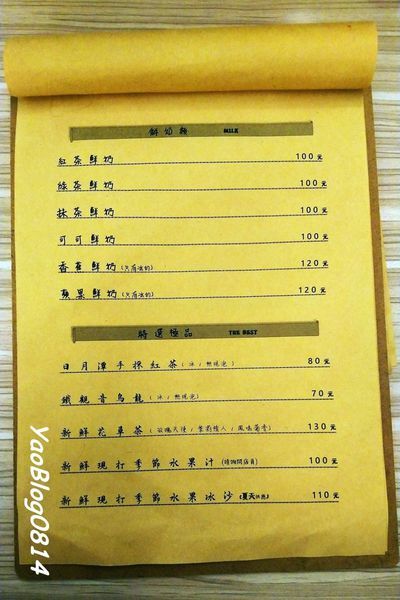 鮮奶類 MILK
紅茶鮮奶 100元
綠茶鮮奶 100元
抹茶鮮奶 100元
可可鮮奶 100元
香蕉鮮奶(只有冰的) 120元
蘋果鮮奶(只有冰的) 120元
特選極品 THE BEST
日月潭手採紅茶(冰/熱現泡) 80元
鐵觀音烏龍(冰/熱現泡) 70元
新鮮花草茶(玫瑰天使/紫羅情人/風味菊香) 130元
新鮮現打季節水果汁(請詢問店員) 100元
新鮮現打季節水果冰沙《夏天供應》 110元
YaoBlog0814